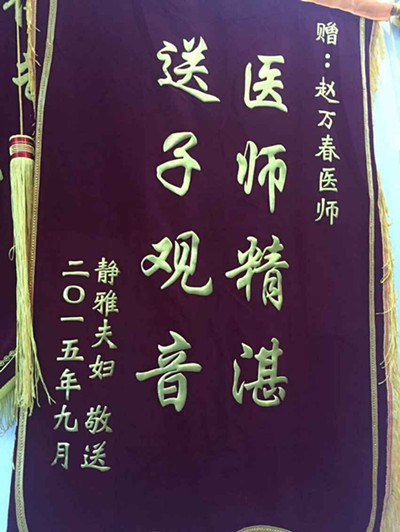 赠：赵万春医师
医师精湛
送子观音
静雅夫妇 敬送
二〇一五年九月